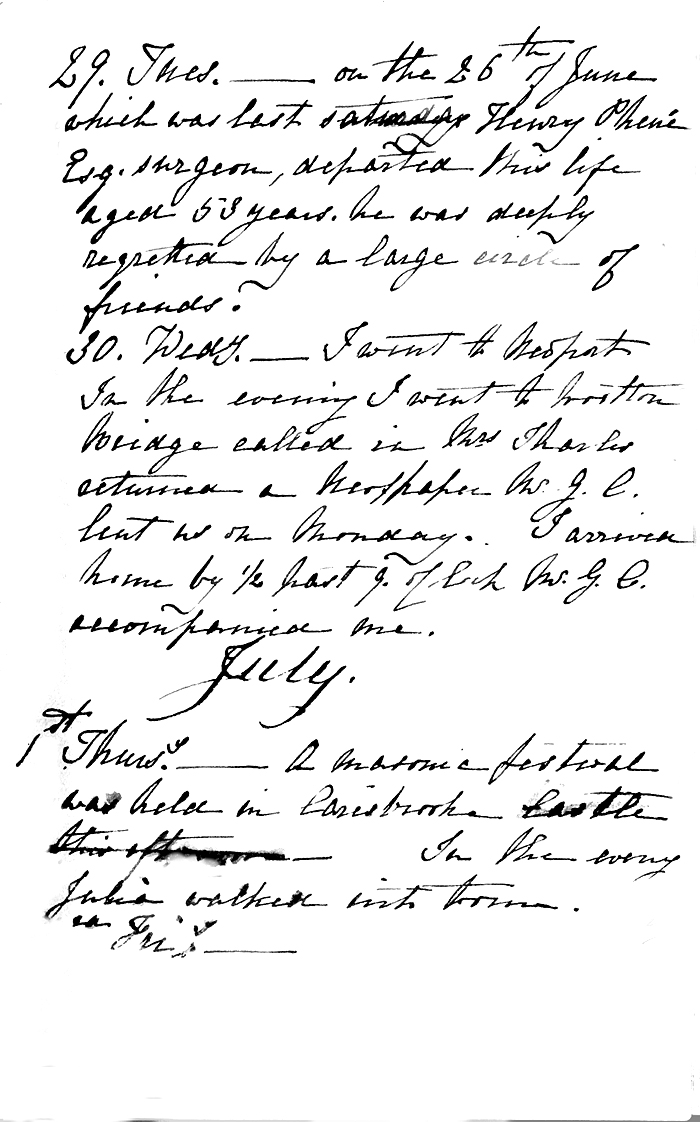 29. Tues. —— on the 26th of June
which was last saturday Henry Phené
Esq. surgeon, departed this life
aged 53 years. he was deeply
regretted by a large circle of
friends.
30. Wedy. —— I went to Newport
In the evening I went to Wootton
Bridge called in Mrs
returned a Newspaper Mr. G. C.
lent us on Monday. I arrived
home by ½ past 9. of Clock Mr. G. C.
accompanied me.
July.
1st Thursy. —— A masonic festival
was held in Carisbrooke Castle
this afternoon — In the eveng
Julia walked into town.
Friy ——